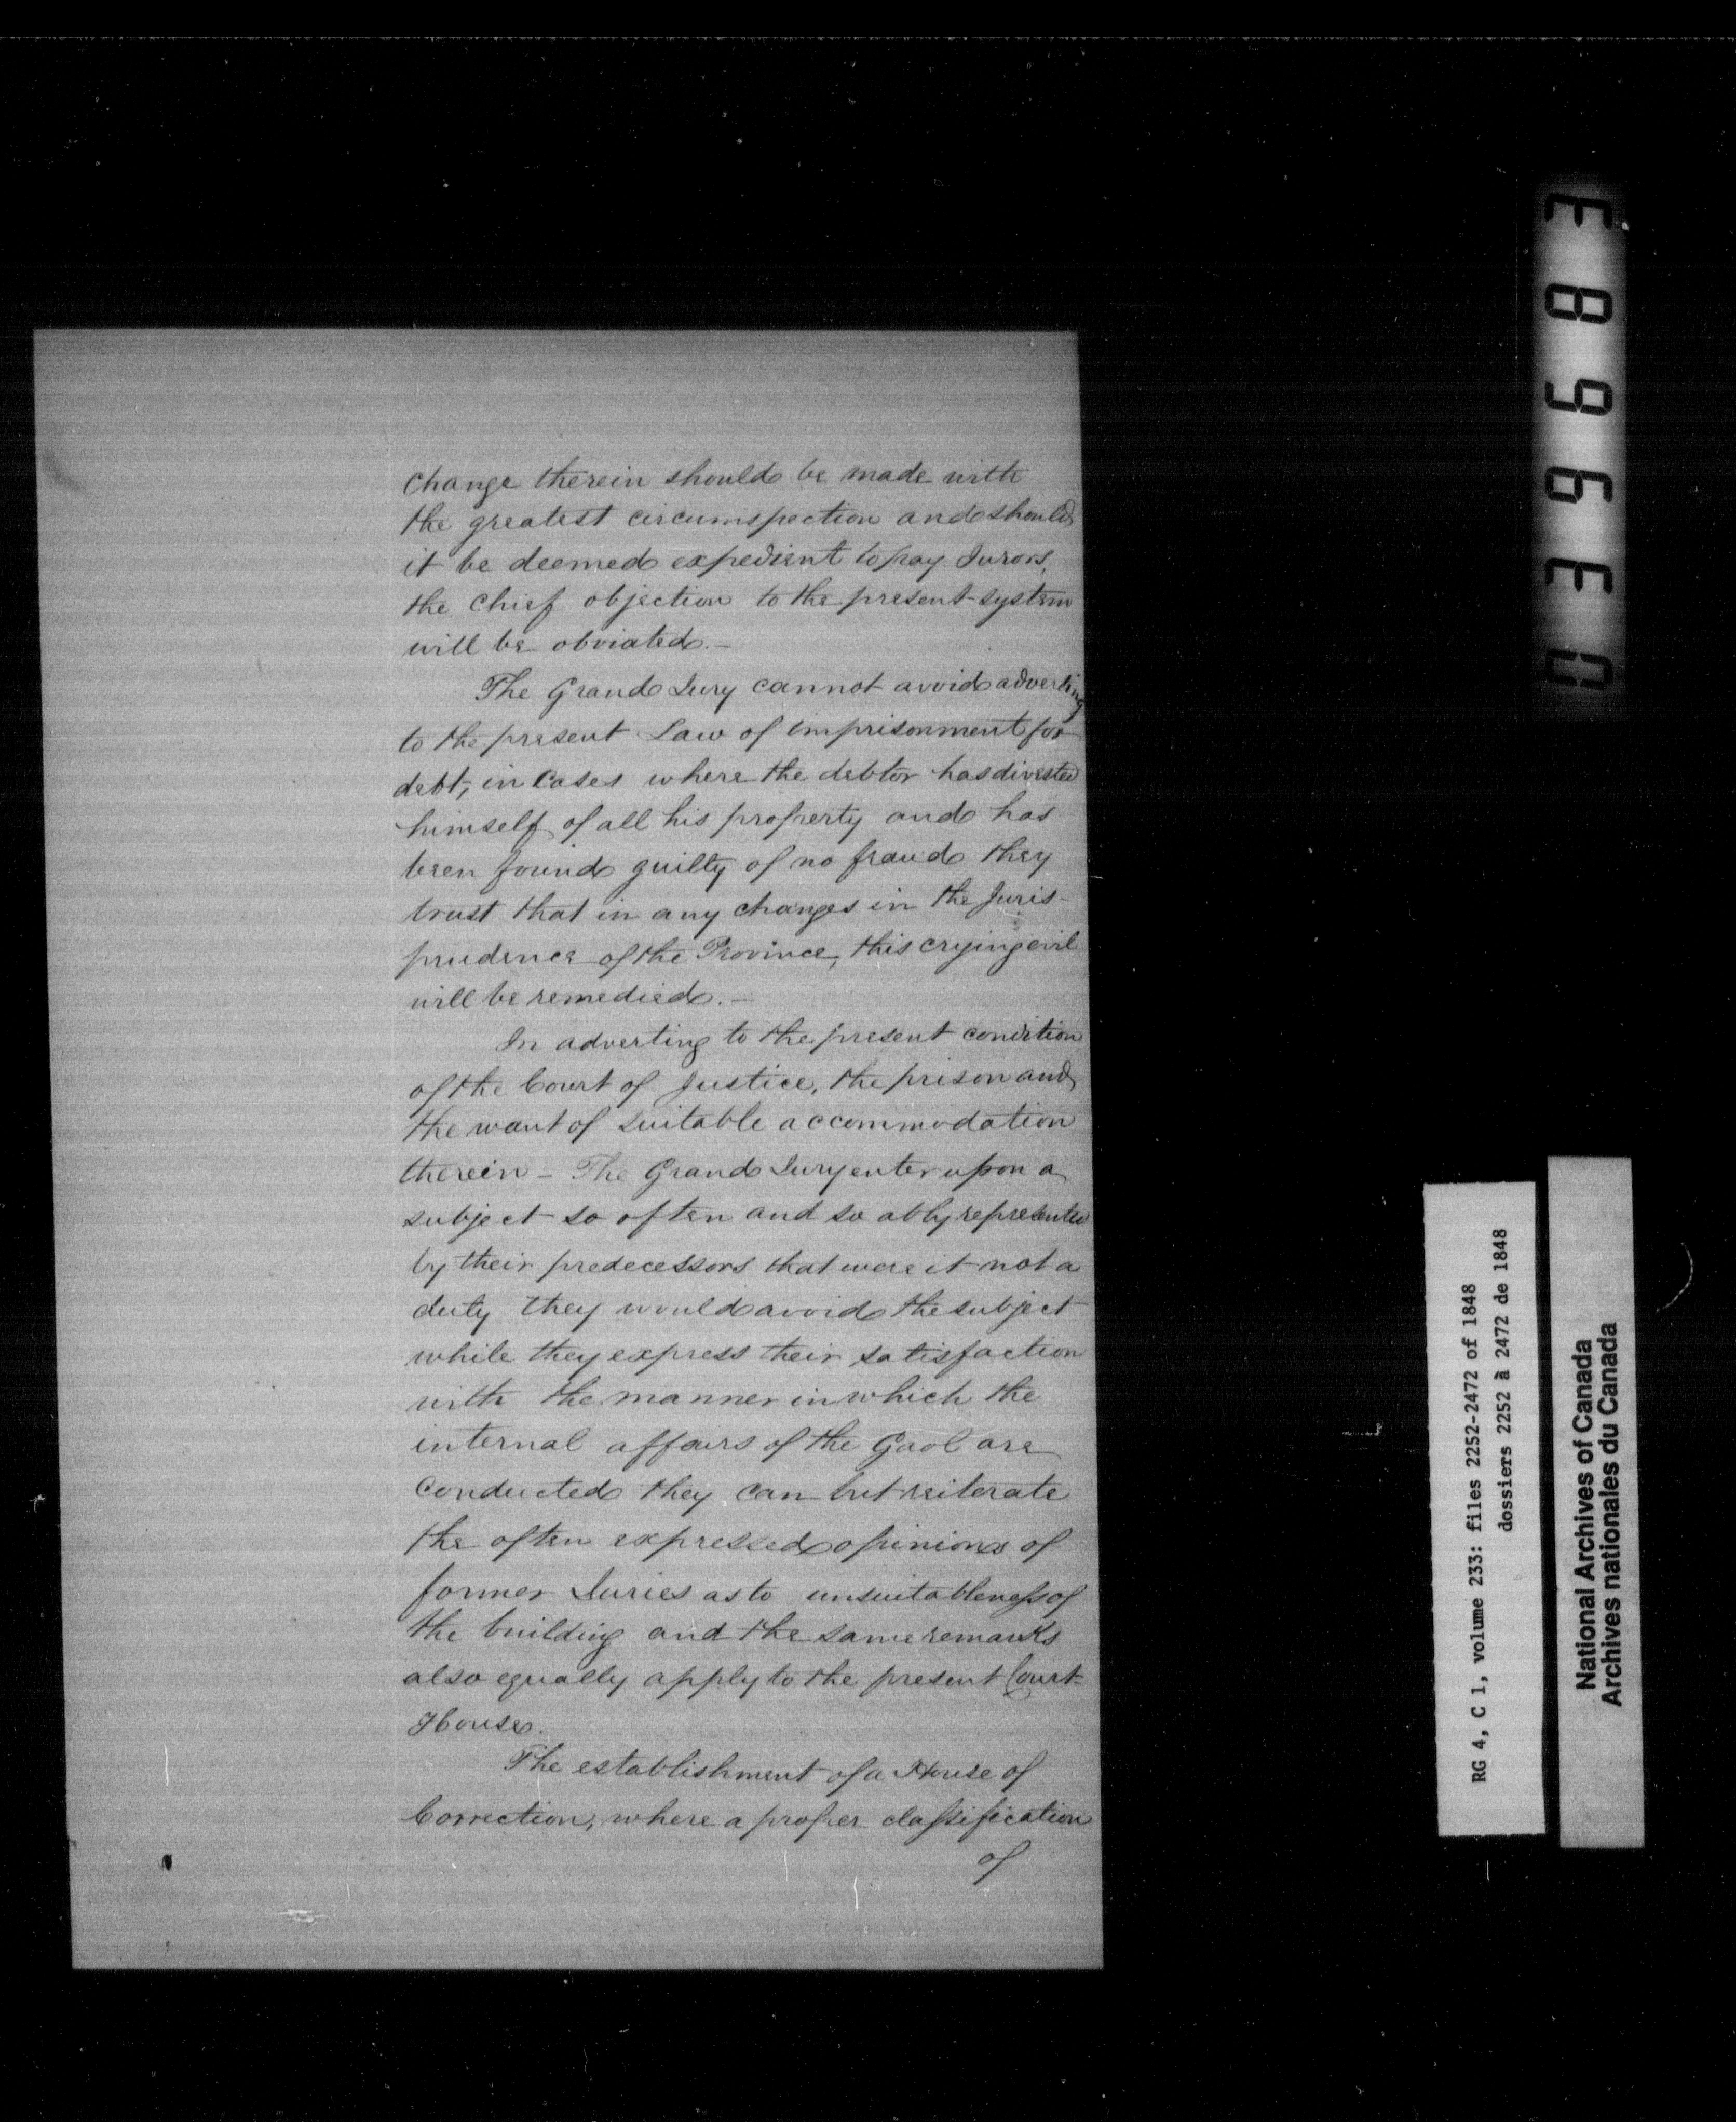 change therein should be made with
the greatest circumspection and should
it be deemed expedient to pay Jurors,
the chief objection to the present system
will be obviated. —
The Grand Jury cannot avoid adverting
to the present Law of imprisonment for
debt, in Cases where the debtor has divested
himself of all his property and has
been found guilty of no fraud they
trust that in any changes in the Juris-
prudence of the Province, this crying evil
will be remedied. —
In adverting to the present condition
of the Court of Justice, the prison and
the want of suitable accommodation
therein – The Grand Jury enter upon a
subject so often and so ably represented
by their predecessors that were it not a
duty they would avoid the subject
while they express their satisfaction
with the manner in which the
internal affairs of the Gaol are
conducted they can but reiterate
the often expressed opinions of
former Juries as to unsuitableness of
the building and the same remarks
also equally apply to the present Court
House.
The establishment of a House of
Correction, where a proper classification
of
039683
RG 4, C 1, volume 233: files 2252-2472 of 1848
dossiers 2252 à 2472 de 1848
National Archives of Canada
Archives nationales du Canada